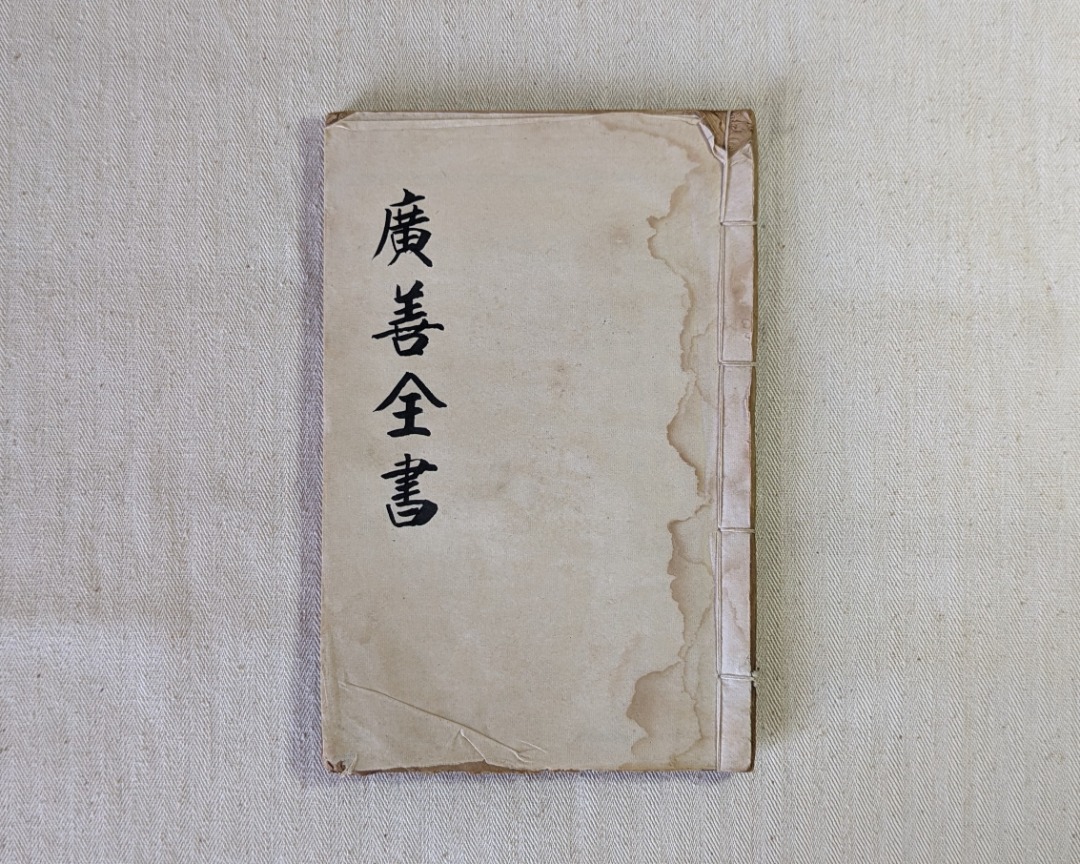 廣善全書